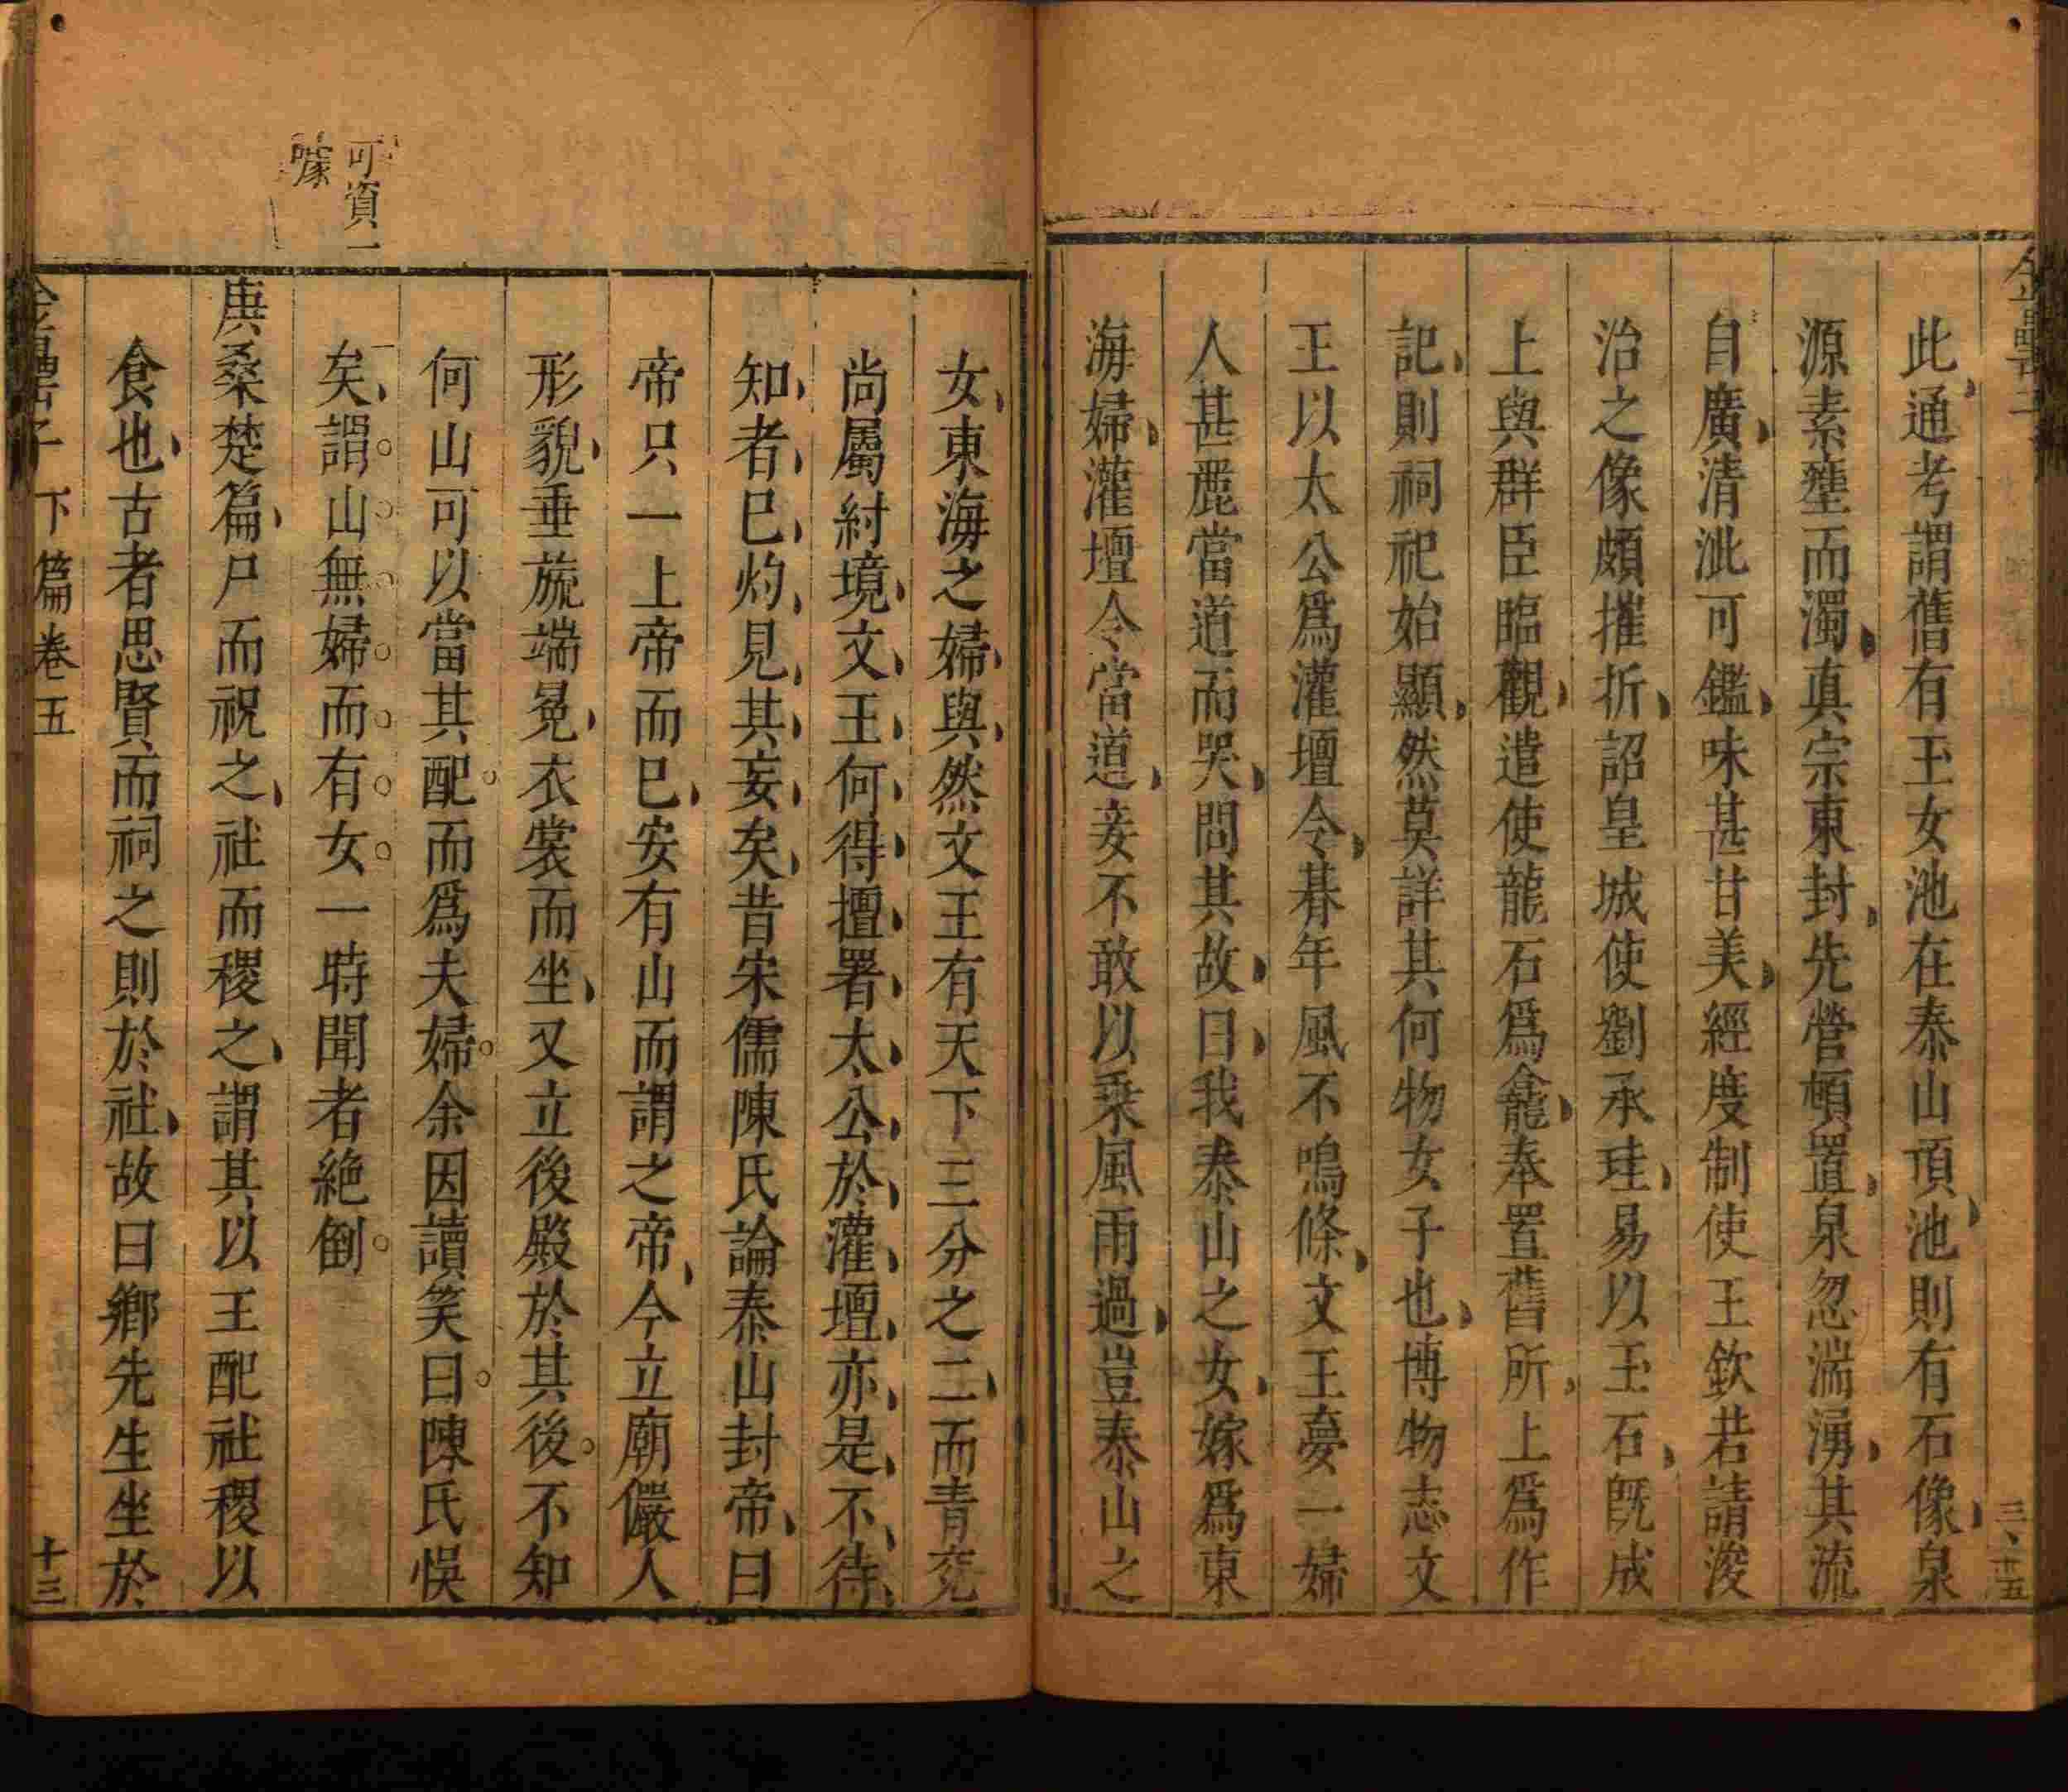 此通考謂舊有玉女池在泰山頂池則有石像泉
源素壅而濁真宗東封先營頓置泉忽湍湧其流
自廣清泚可鑑味甚甘美經度制使王欽若請浚
治之像頗摧折詔皇城使劉承珪易以玉石旣成
上與群臣臨觀遣使龍石爲龕奉置舊所上爲作
記則祠祀始顯然莫詳其何物女子也博物志文
王以太公爲灌壇令朞年風不鳴條文王夢一婦
人甚麗當道而哭問其故曰我泰山之女嫁爲東
海婦灌壇令當道妾不敢以乘風雨過豈泰山之
女東海之婦與然文王有天下三分之二而青兖
尚屬紂境文王何得擅署太公於灌壇亦是不待
知者已灼見其妄矣昔宋儒陳氏論泰山封帝曰
帝只一上帝而已安有山而謂之帝今立廟儼人
形貌垂旒端冕衣裳而坐又立後殿於其後不知
何山可以當其配而爲夫婦余因讀笑曰陳氏悞
矣謂山無婦而有女一時聞者絶倒
可資一
噱
庚桑楚篇尸而祝之社而稷之謂其以王配社稷以
食也古者思賢而祠之則於社故曰鄉先生坐於
下篇卷五
十三